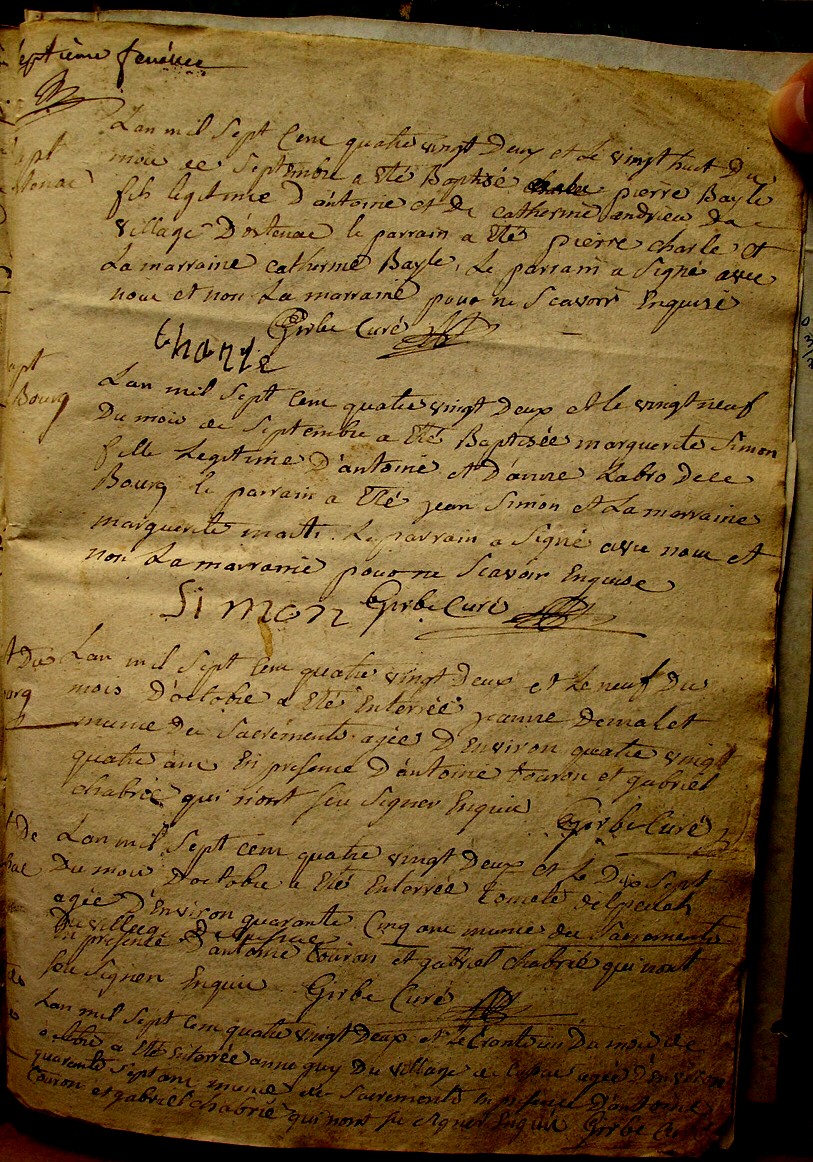 Septième
L'an mil Sept Cent quatre vingt Deux et Le vingt huit Du
mois de Septembre a Eté Baptisé pierre Bayle
fils legitime D'antoine et De catherine andrieu
village D'ostenac le parrain a Eté pierre charle et
La marraine catherine Bayle, Le parrain a Signé avec
nous et non La marraine pour ne Scavoir Enquise
Girbe Curé
Charle
Bourg
L'an mil Sept Cent quatre vingt Deux et le vingt neuf
Du mois de Septembre a Eté Baptisée marguerite Simon
fille Legitime D'antoine et D'anne Labro
Bourg le parrain a Eté jean Simon et La marraine
marguerite Le parrain a Signé avec nous et
non La marraine pour ne Scavoir Enquise
Simon Girbe Curé
L'an mil Sept Cent quatre vingt Deux et Le neuf Du
mois D'octobre a Eté Enterrée jeanne Demalet
munie des Sacrements agée D'Environ quatre vingt
quatre ans En presence D'antoine Couron et gabriel
chabrié qui n'ont seu Signer Enquis Girbe Curé
L'an mil Sept Cent quatre vingt Deux et Le Dix Sept
Du mois D'octobre a Eté Enterrée
agée D'Environ quarante Cinq ans munie des Sacrements
Du village de
En presence D'antoine Couron et gabriel chabrié qui n'ont
seu Signer Enquis Girbe Curé
L'an mil Sept Cent quatre vingt Deux et le Du mois de
octobre a Eté Enterrée anne guy Du village de agée D'Environ
quarante Sept ans munie de Sacrements En presence D'antoine
Couron et gabriel chabrié qui n'ont seu Signer Enquis Girbe